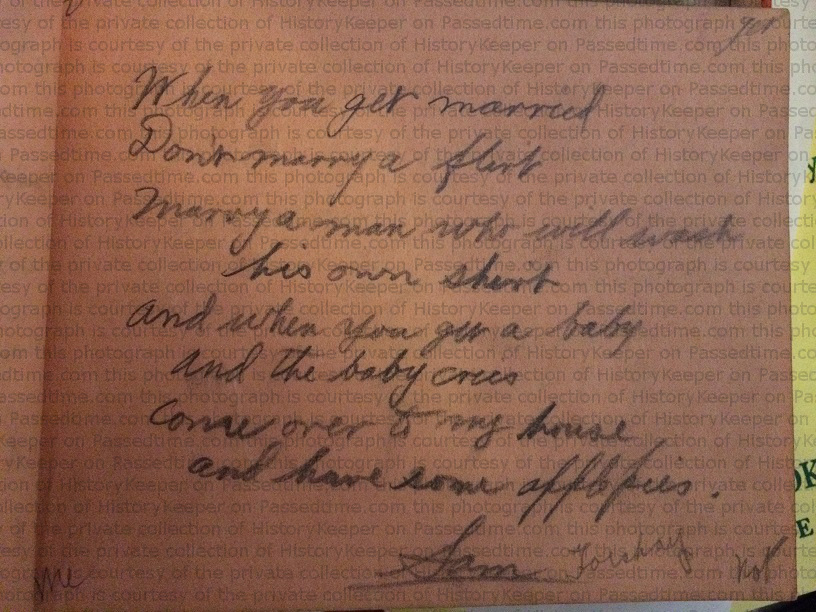 yet
When you get married
Don't marry a flirt
Marry a man who will wash
his own shirt
And when you get a baby
And the baby cries
Come over to my house
and have some
Sam
me
Not
OK
E
this photograph is courtesy of the private collection of HistoryKeeper on Passedtime.com